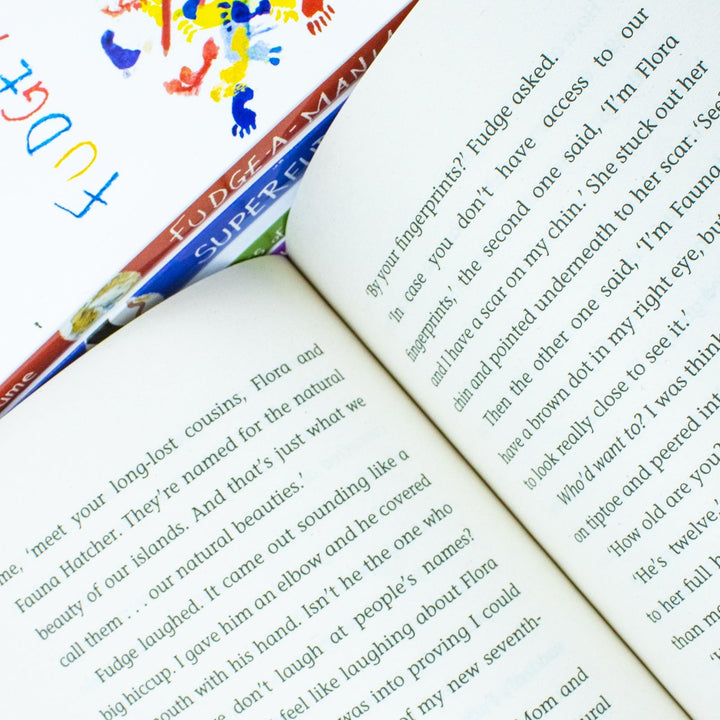 FUDGE
FUDGE-A-MANIA
SUPERFU
ume
me, 'meet your long-lost cousins, Flora and
Fauna Hatcher. They're named for the natural
beauty of our islands. And that's just what we
call them . . . our natural beauties.'
Fudge laughed. It came out sounding like a
big hiccup. I gave him an elbow and he covered
mouth with his hand. Isn't he the one who
don't laugh at people's names?
feel like laughing about Flora
was into proving I could
of my new seventh-
Mom and
tural
'By your fingerprints?' Fudge asked.
'In case you don't have access to our
fingerprints,' the second one said, 'I'm Flora
and I have a scar on my chin.' She stuck out her
chin and pointed underneath to her scar. 'See
Then the other one said, 'I'm Fauna
have a brown dot in my right eye, bu
to look really close to see it.'
Who'd want to? I was think
on tiptoe and peered into
'How old are you?
'He's twelve,'
to her full h
than m